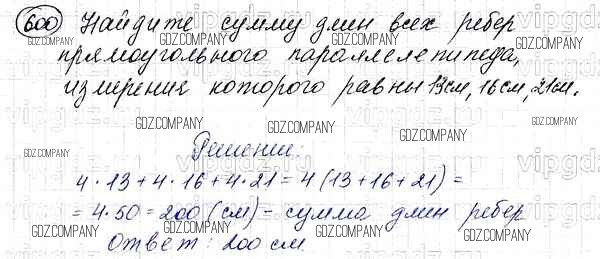 600 Найдите сумму длин всех ребер
GDZ.COMPANY GDZ.COMPANY GDZ.COMPANY GDZ.COMPANY
прямоугольного параллелепипеда,
измерения которого равны 13см, 16см, 21см.
GDZ.COMPANY GDZ.COMPANY GDZ.COMPANY
Решение:
GDZ.COMPANY GDZ.COMPANY GDZ.COMPANY GDZ.COMPANY
4·13+4·16+4·21=4(13+16+21)=
=4·50=200 (см) - сумма длин ребер
GDZ.COMPANY GDZ.COMPANY GDZ.COMPANY GDZ.COMPANY
Ответ: 200 см